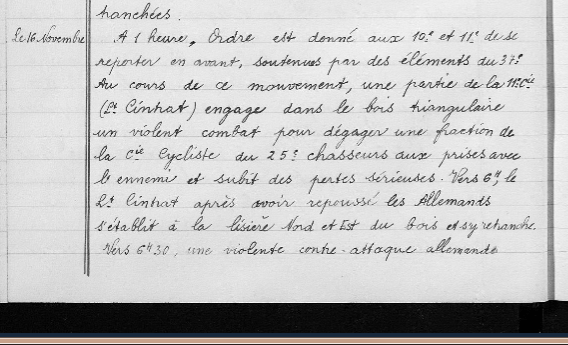 tranchées.
Le 16 Novembre A 1 heure, Ordre est donné aux 10e et 11e de se
reporter en avant, soutenues par des éléments du 37e.
Au cours de ce mouvement, une partie de la 11e Cie
(Lt Cintrat) engage dans le bois triangulaire
un violent combat pour dégager une fraction de
la Cie Cycliste du 25e chasseurs aux prises avec
l'ennemi et subit des pertes sérieuses. Vers 6H, le
Lt Cintrat après avoir repoussé les Allemands
s'établit à la lisière Nord et Est du bois et s'y retranche.
Vers 6H30, une violente contre-attaque allemande